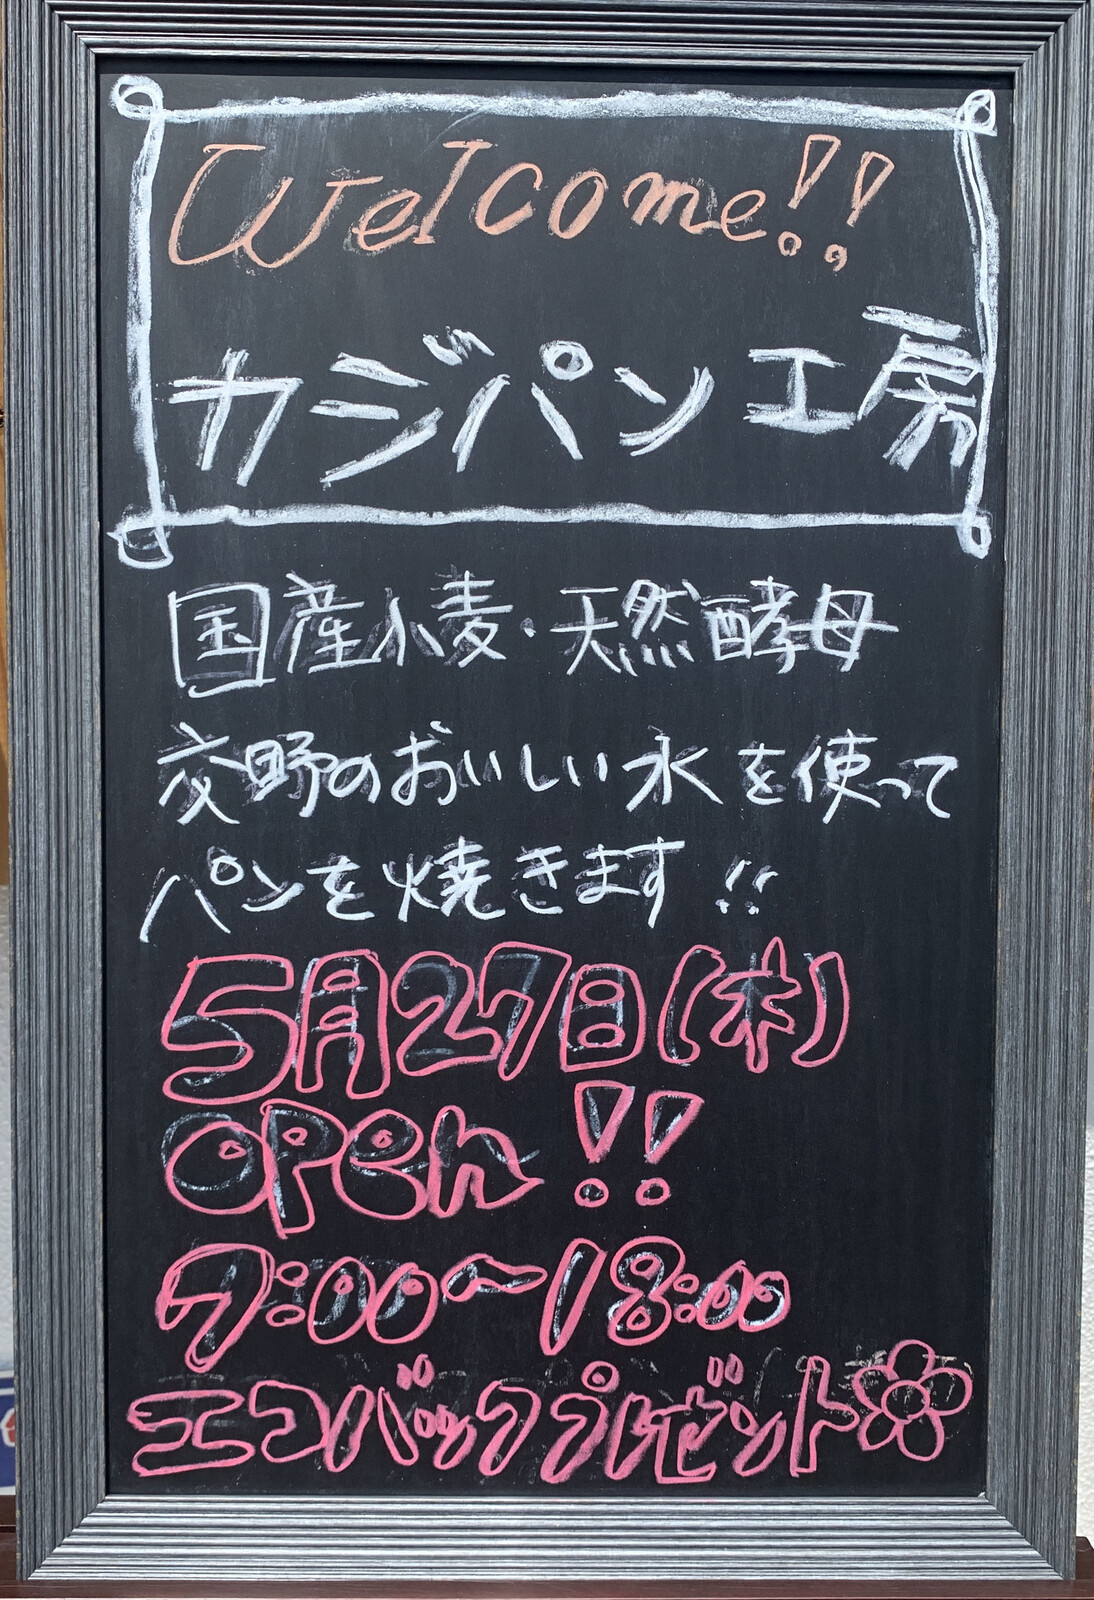 Welcome!!
カジパン工房
国産小麦・天然酵母
交野のおいしい水を使って
パンを焼きます!!
5月27日(木)
OPen!!
7:00~18:00
エコバックプレゼント